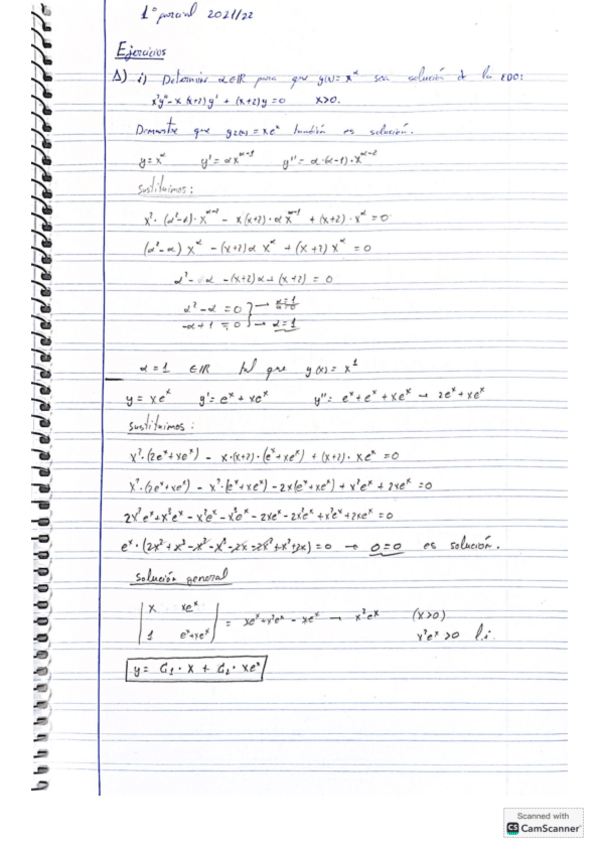 1º parcial 2021/22
Ejercicios
1) i) Determinar α∈ℝ para que y(x)= x^α sea solución de la EDO:
x²y''- x(x+2)y' + (x+2)y=0 x>0.
Demuestre que y2(x)= xe^x también es solución.
y=x^α y'= αx^(α-1) y''= α·(α-1)·x^(α-2)
Sustituimos:
x²·(α²-α)·x^(α-2) - x(x+2)·αx^(α-1) + (x+2)·x^α =0
(α²-α) x^α -(x+2)α x^α +(x+2) x^α =0
α²- α -(x+2)α+(x+2) = 0
α²-α =0 →
-α+1 =0 → α=1
α=1 ∈ℝ tal que y(x)= x^1
y= xe^x y'= e^x + xe^x y''= e^x+e^x+xe^x → 2e^x+xe^x
Sustituimos:
x²·(2e^x+xe^x) - x·(x+2)·(e^x+xe^x) + (x+2)·xe^x =0
x²·(2e^x+xe^x) - x²·(e^x+xe^x) -2x(e^x+xe^x) + x²e^x + 2xe^x =0
2x²e^x+x³e^x -x²e^x -x³e^x -2xe^x -2x²e^x +x²e^x +2xe^x =0
e^x·(2x²+x³-x²-x³-2x-2x²+x²+2x)=0 → 0=0 es solución.
Solución general
x xe^x
1 e^x+xe^x = xe^x+x²e^x - xe^x → x²e^x (x>0)
x²e^x >0 l.i.
y= C1·x + C2·xe^x
Scanned with
CS CamScanner